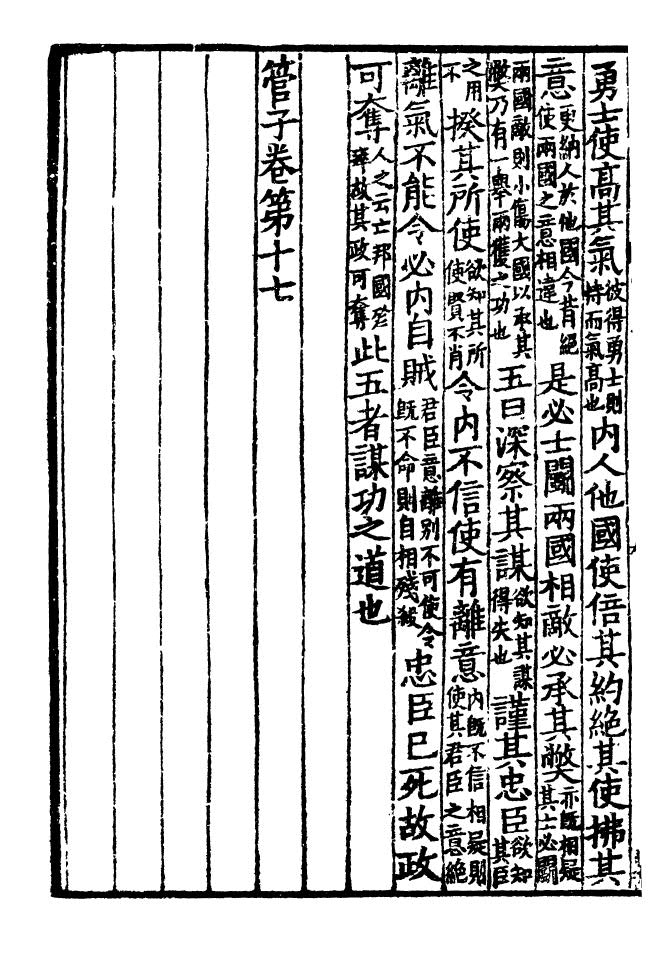 勇士使髙其氣彼得勇士則恃而氣髙也內人他國使倍其約絶其使拂其
意更納人於他國今昔絕使兩國之意相違也是必士鬭兩國相敵必承其獘亦旣相疑其士必鬭
兩國敵則小傷大國以承其獘乃有一舉兩獲之功也五曰深察其謀欲知其謀得失也謹其忠臣欲知其臣
之用不揆其所使欲知其所使賢不肖令內不信使有離意內旣不信相疑則使其君臣之意絕
離氣不能令必內自賊君臣意離別不可使令旣不命則自相殘殺忠臣已死故政
可奪人之云亡邦國殄瘁故其政可奪此五者謀功之道也
管子卷第十七